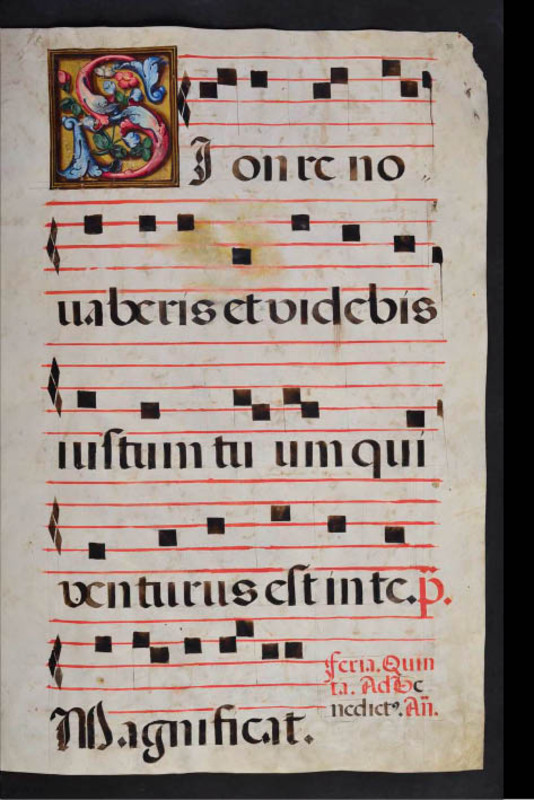 SIon re no
uaberis et videbis
iustum tuum qui
venturus est in te. p̄.
Magnificat.
feria. Quin
ta. Ad Be
nedictꝰ. Añ.